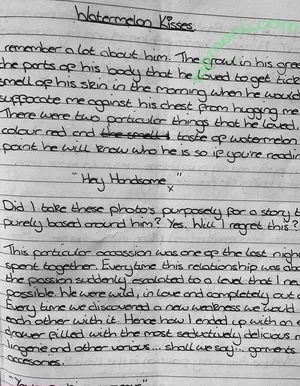 Watermelon Kisses.
remember a lot about him. The growl in his gree
the parts of his body that he loved to get lick
smell of his skin in the morning when he would
supporate me against his chest from hugging me
There were two particular things that he loved.
colour red and the smell & taste of watermelon
point he will know who he is so if you're readin
"Hey Handsome."
x
Did I take these photo's purposely for a story t
purely based around him? Yes. Will I regret this?
This particular occassion was one of the last nigh
spent together. Everytime this relationship was abo
the passion suddenly escalated to a level that I ne
possible. We were wild, in love and completely out o
Every time we discovered a new weakness we would
each other with it. Hence how I ended up with an e
drawer filled with the most seductively delicious r
lingerie and other various... shall we say... garments
accesories.